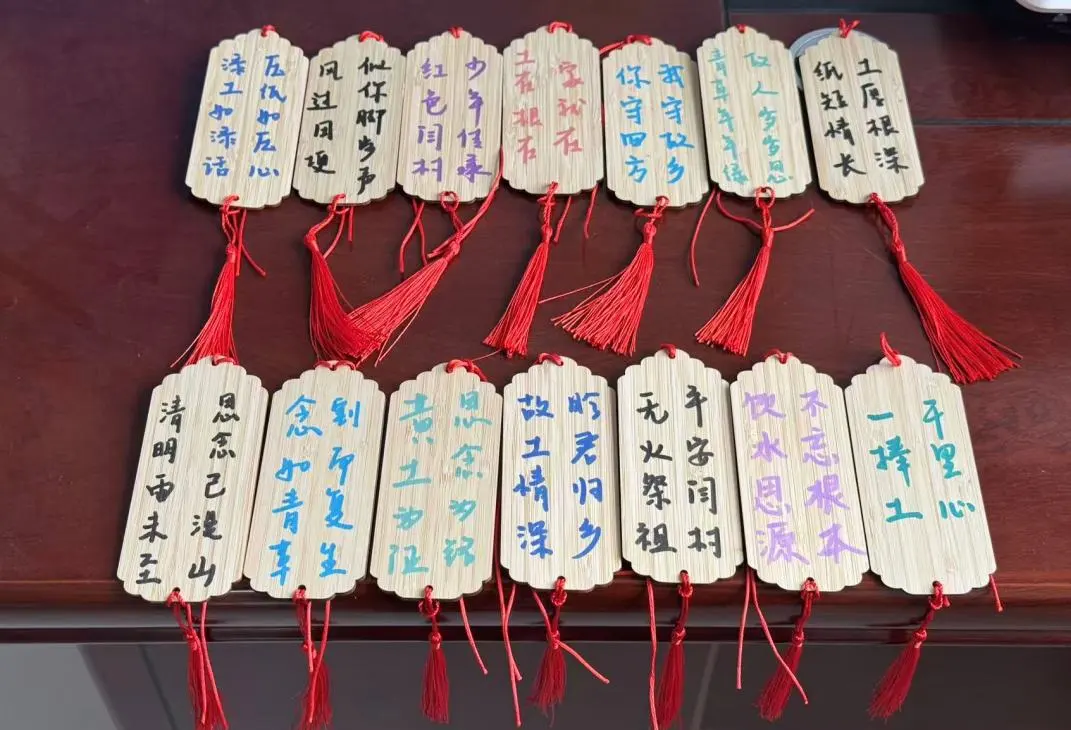 添土如添话
压纸如压心
风过田埂
似你脚步声
红色闫村
少年传承
土在根在
家就在
你守四方
我守故乡
青草年年绿
故人岁岁思
纸短情长
土厚根深
清明雨未至
思念已漫山
念如青草
割而复生
黄土为证
思念为铭
故土情深
盼君归乡
无火祭祖
平安闫村
饮水思源
不忘根本
一捧土
千里心